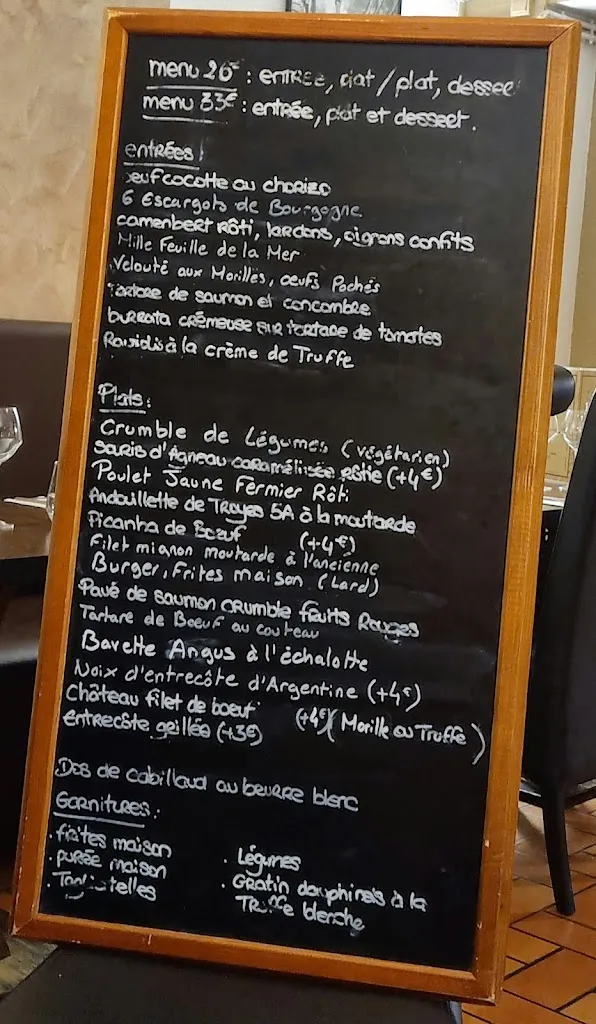 menu 26€ : entrée, plat / plat, dessert
menu 33€ : entrée, plat et dessert.
entrées :
œuf cocotte au chorizo
6 Escargots de Bourgogne
camenbert Rôti, lardons, oignons confits
Mille Feuille de la Mer
Velouté aux Morilles, oeufs Pochés
tartare de saumon et concombre
burrata crémeuse sur tartare de tomates
Raviolis à la crème de Truffe
Plats :
Crumble de Légumes (végétarien)
Souris d'Agneau caramélisée Rôtie (+4€)
Poulet Jaune Fermier Rôti
Andouillette de Troyes 5A à la moutarde
Picanha de Bœuf (+4€)
Filet mignon moutarde à l'ancienne
Burger, Frites maison (Lard)
Pavé de saumon crumble fruits Rouges
Tartare de Boeuf au couteau
Bavette Angus à l'échalotte
Noix d'entrecôte d'Argentine (+4€)
Château filet de boeuf (+4€) (Morille ou Truffe)
entrecôte grillée (+3€)
Dos de cabillaud au beurre blanc
Garnitures :
. frites maison
. purée maison
. Tagliatelles
. Légumes
. Gratin dauphinois à la
Truffe blanche